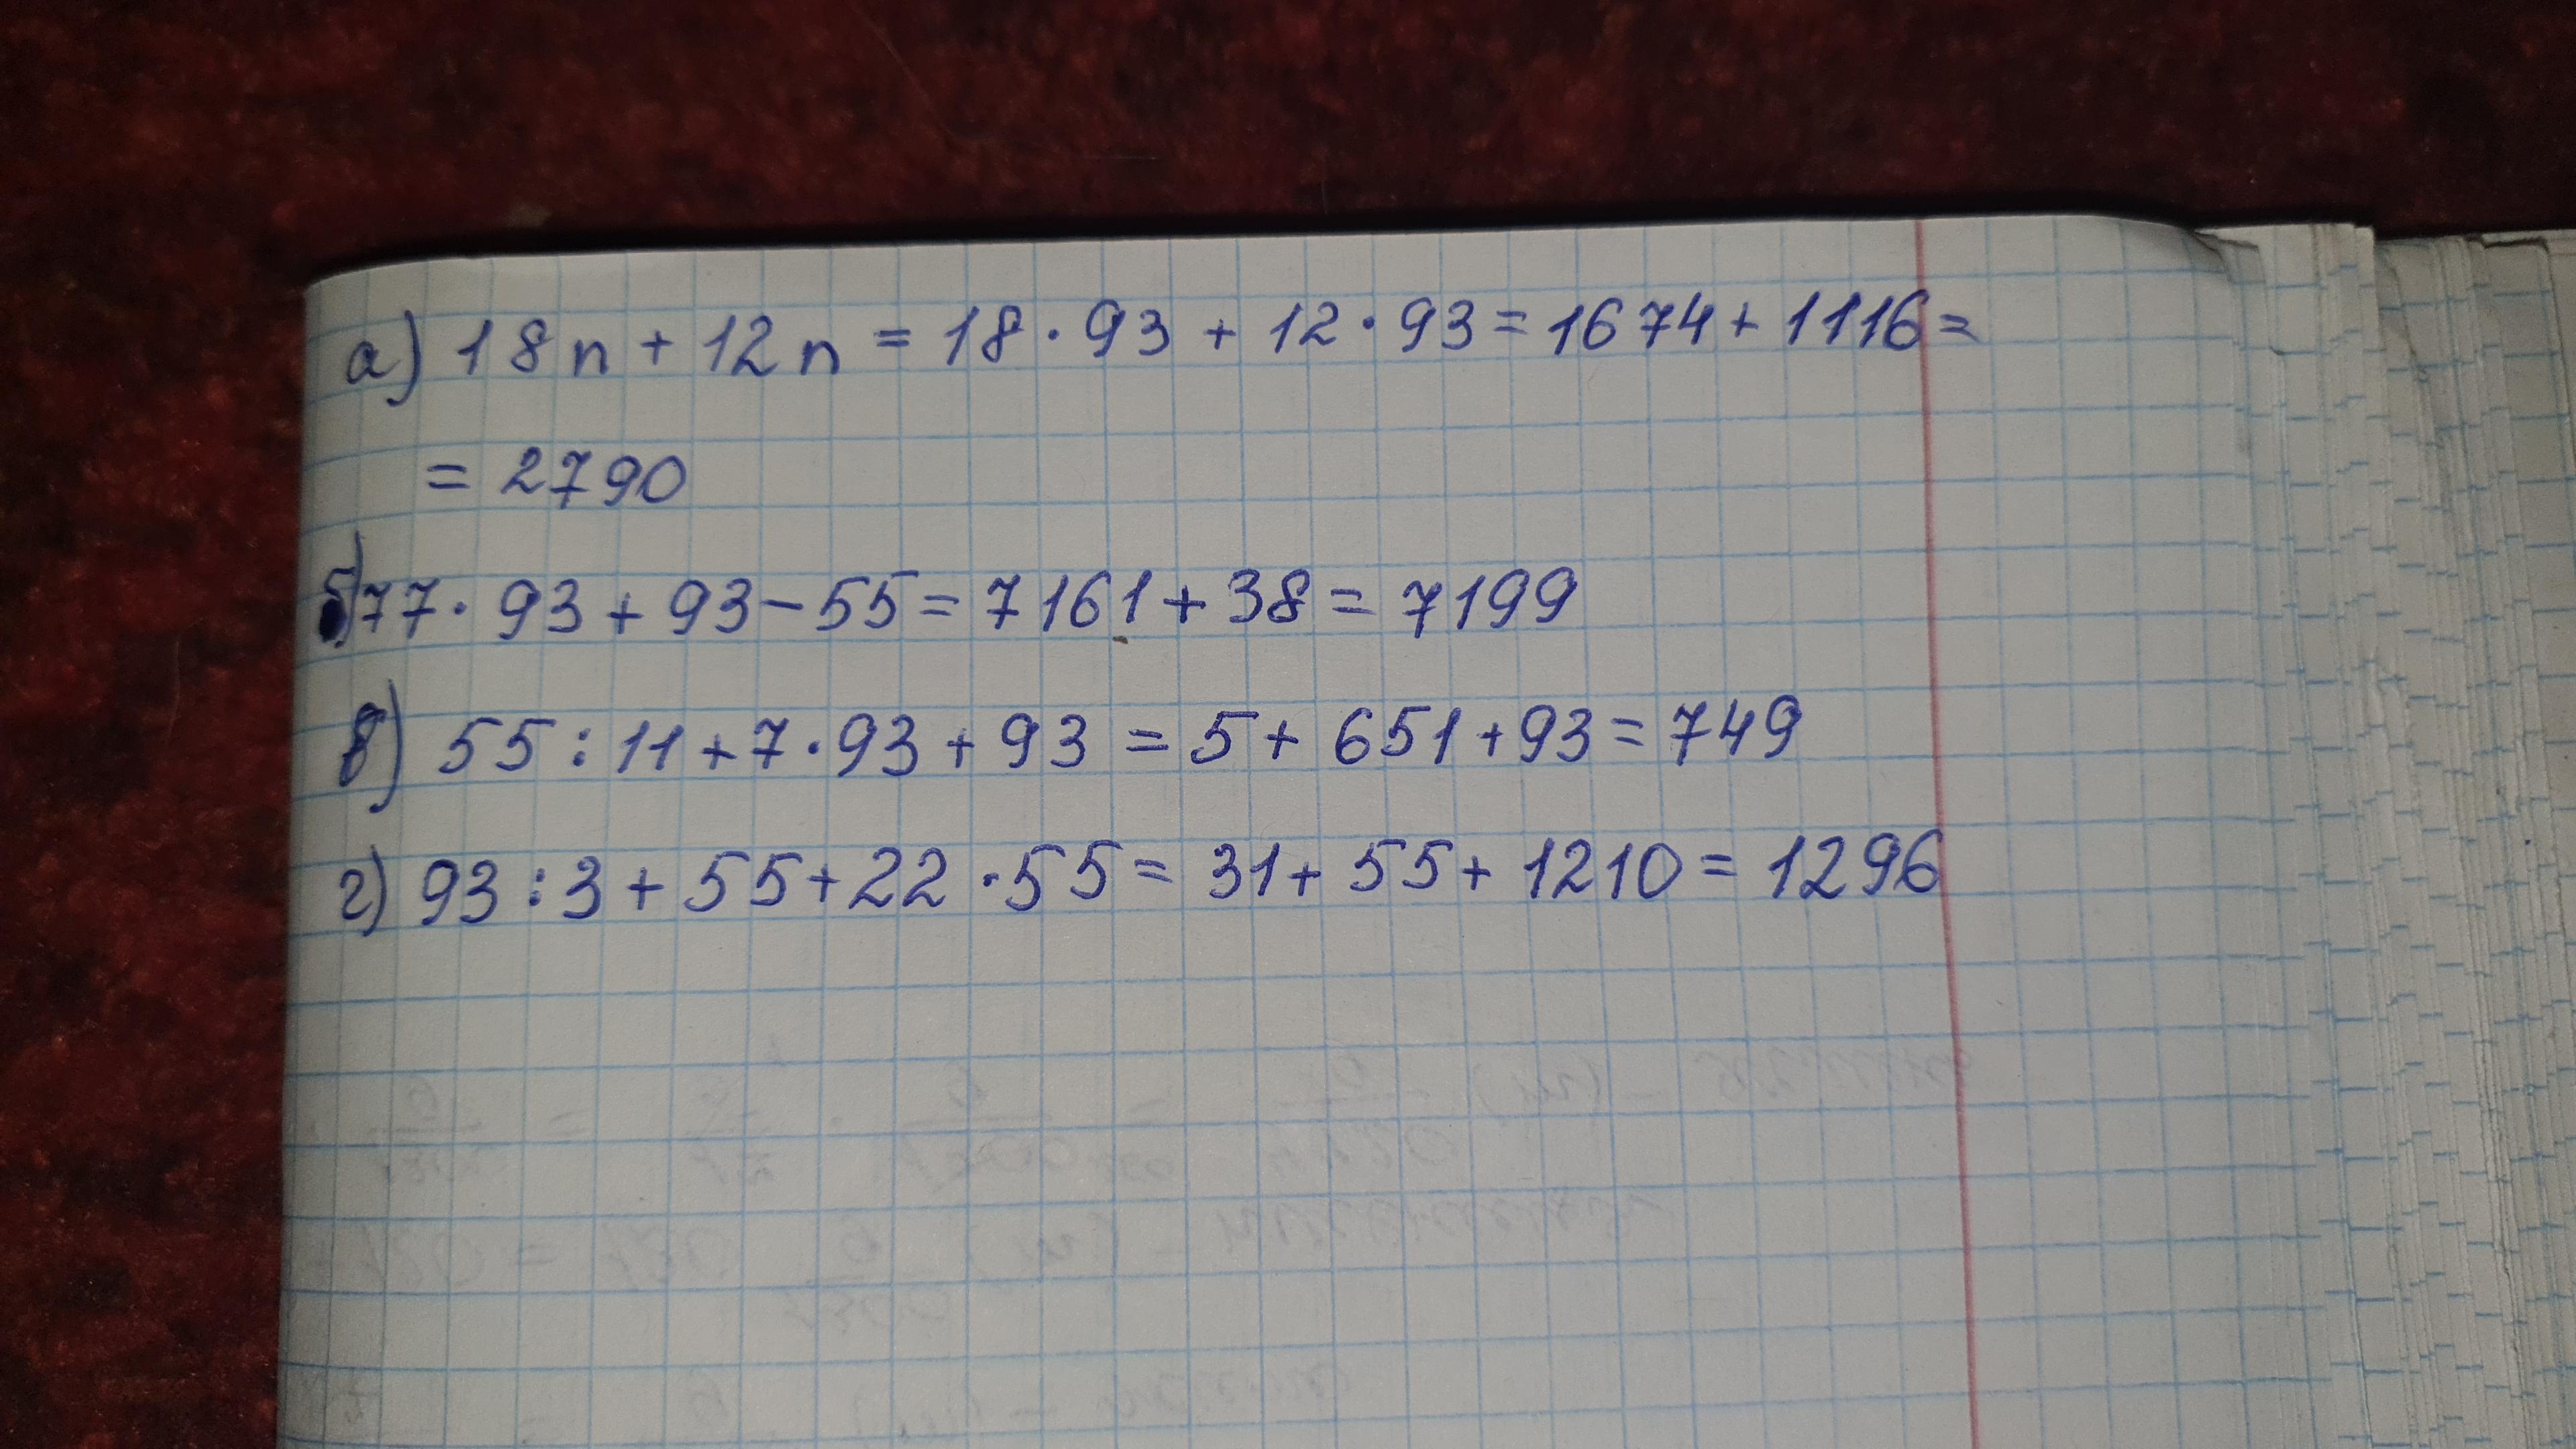 а) 18n + 12n = 18 · 93 + 12 · 93 = 1674 + 1116 =
= 2790
б) 77 · 93 + 93 - 55 = 7161 + 38 = 7199
в) 55 : 11 + 7 · 93 + 93 = 5 + 651 + 93 = 749
г) 93 : 3 + 55 + 22 · 55 = 31 + 55 + 1210 = 1296